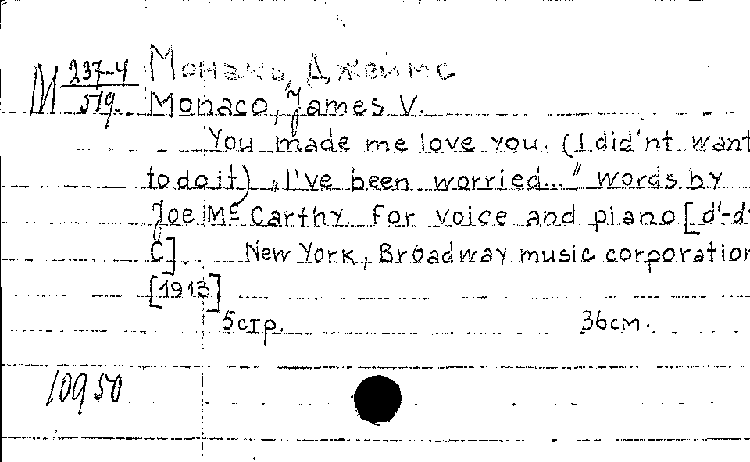 М 237-4 Монако, Джеймс
519. Monaco, James V.
You made me love you. (I did'nt want
to do it) „I've been worried..." Words by
Joe Mc Carthy. For voice and piano [d'-d
C]. New York, Broadway music corporation
[1913]
5стр. 36см.
10950